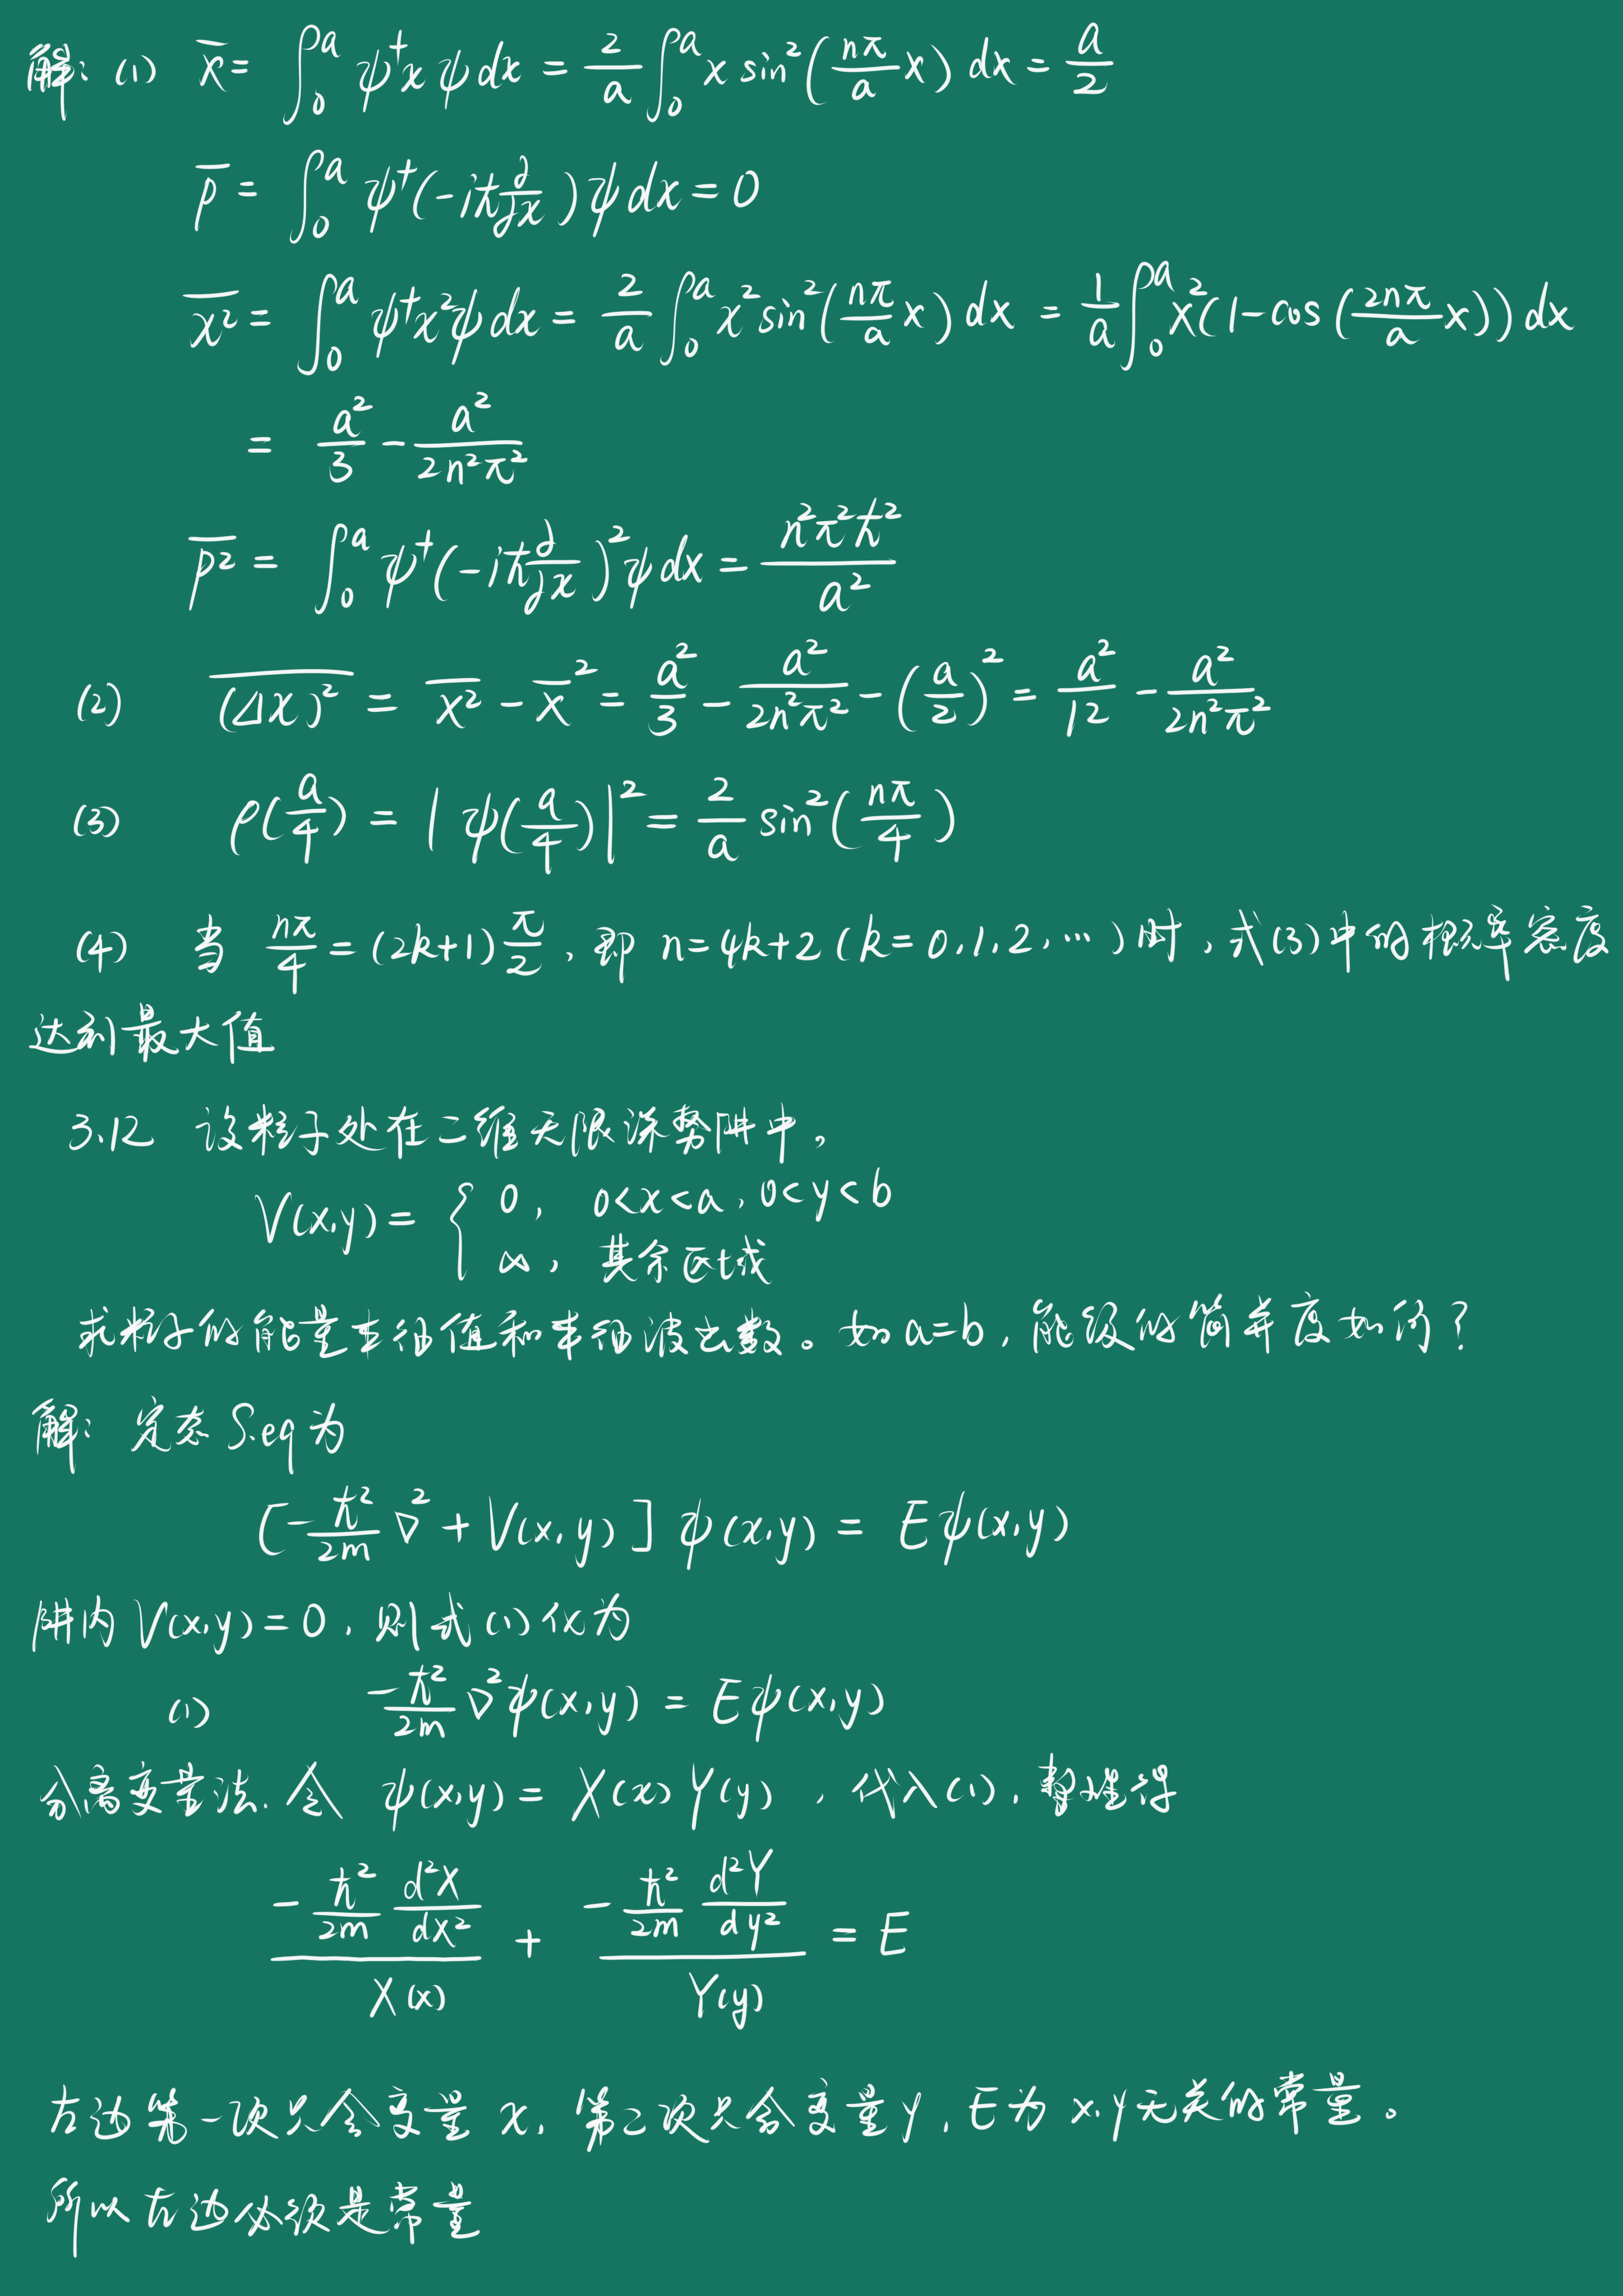 解: (1) x̄ = ∫₀ᵃ ψ†xψdx = 2/a ∫₀ᵃ x sin²(nπ/a x) dx = a/2
p̄ = ∫₀ᵃ ψ†(-iħ ∂/∂x)ψdx = 0
x²‾ = ∫₀ᵃ ψ†x²ψdx = 2/a ∫₀ᵃ x² sin²(nπ/a x) dx = 1/a ∫₀ᵃ x²(1-cos(2nπ/a x))dx
= a²/3 - a²/2n²π²
p²‾ = ∫₀ᵃ ψ†(-iħ ∂/∂x)²ψdx = n²π²ħ²/a²
(2) (Δx)²‾ = x²‾ - x̄² = a²/3 - a²/2n²π² - (a/2)² = a²/12 - a²/2n²π²
(3) ρ(a/4) = |ψ(a/4)|² = 2/a sin²(nπ/4)
(4) 当 nπ/4 = (2k+1)π/2, 即 n=4k+2 (k=0,1,2,…)时,式(3)中的概率密度
达到最大值
3.12 设粒子处在二维无限深势阱中,
V(x,y) = { 0, 0<x<a, 0<y<b
∞, 其余区域
求粒子的能量本征值和本征波函数。如a=b,能级的简并度如何?
解: 定态S.eq为
[-ħ²/2m ∇² + V(x,y)]ψ(x,y) = Eψ(x,y)
阱内V(x,y)=0,则式(1)化为
(1) -ħ²/2m ∇²ψ(x,y) = Eψ(x,y)
分离变量法.令 ψ(x,y) = X(x)Y(y),代入(1),整理得
(-ħ²/2m d²X/dx²)/X(x) + (-ħ²/2m d²Y/dy²)/Y(y) = E
左边第一项只含变量x,第二项只含变量y,E为x,y无关的常量。
所以左边必须是常量